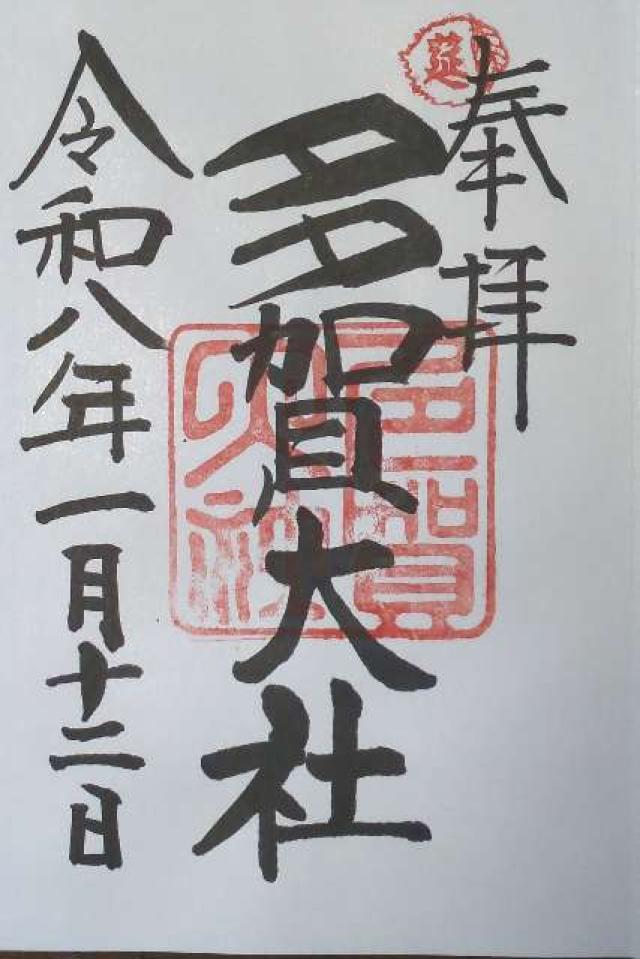 奉拝
莚
多賀大社
多賀大社
令和八年一月十二日